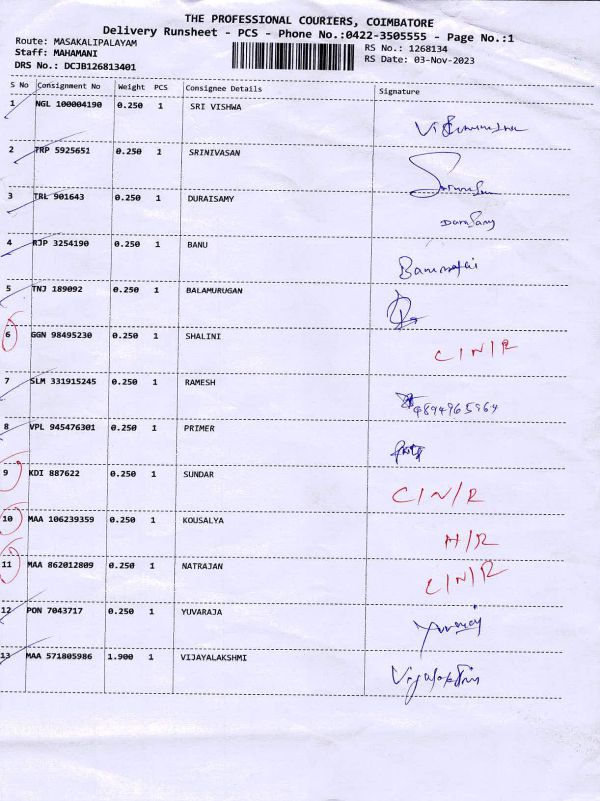 THE PROFESSIONAL COURIERS, COIMBATORE
Delivery Runsheet - PCS - Phone No.:0422-3505555 - Page No.:1
Route: MASAKALIPALAYAM
RS No.: 1268134
Staff: MAHAMANI
RS Date: 03-Nov-2023
DRS No.: DCJB126813401
S No Consignment No Weight PCS Consignee Details Signature
1 NGL 100004190 0.250 1 SRI VISHWA
2 TRP 5925651 0.250 1 SRINIVASAN
3 TRL 901643 0.250 1 DURAISAMY
4 RJP 3254190 0.250 1 BANU
5 TNJ 189092 0.250 1 BALAMURUGAN
6 GGN 98495230 0.250 1 SHALINI C/N/R
7 SLM 331915245 0.250 1 RAMESH
8 VPL 945476301 0.250 1 PRIMER
9 KDI 887622 0.250 1 SUNDAR C/N/R
10 MAA 106239359 0.250 1 KOUSALYA N/R
11 MAA 862012809 0.250 1 NATRAJAN C/N/R
12 PON 7043717 0.250 1 YUVARAJA
13 MAA 571805986 1.900 1 VIJAYALAKSHMI